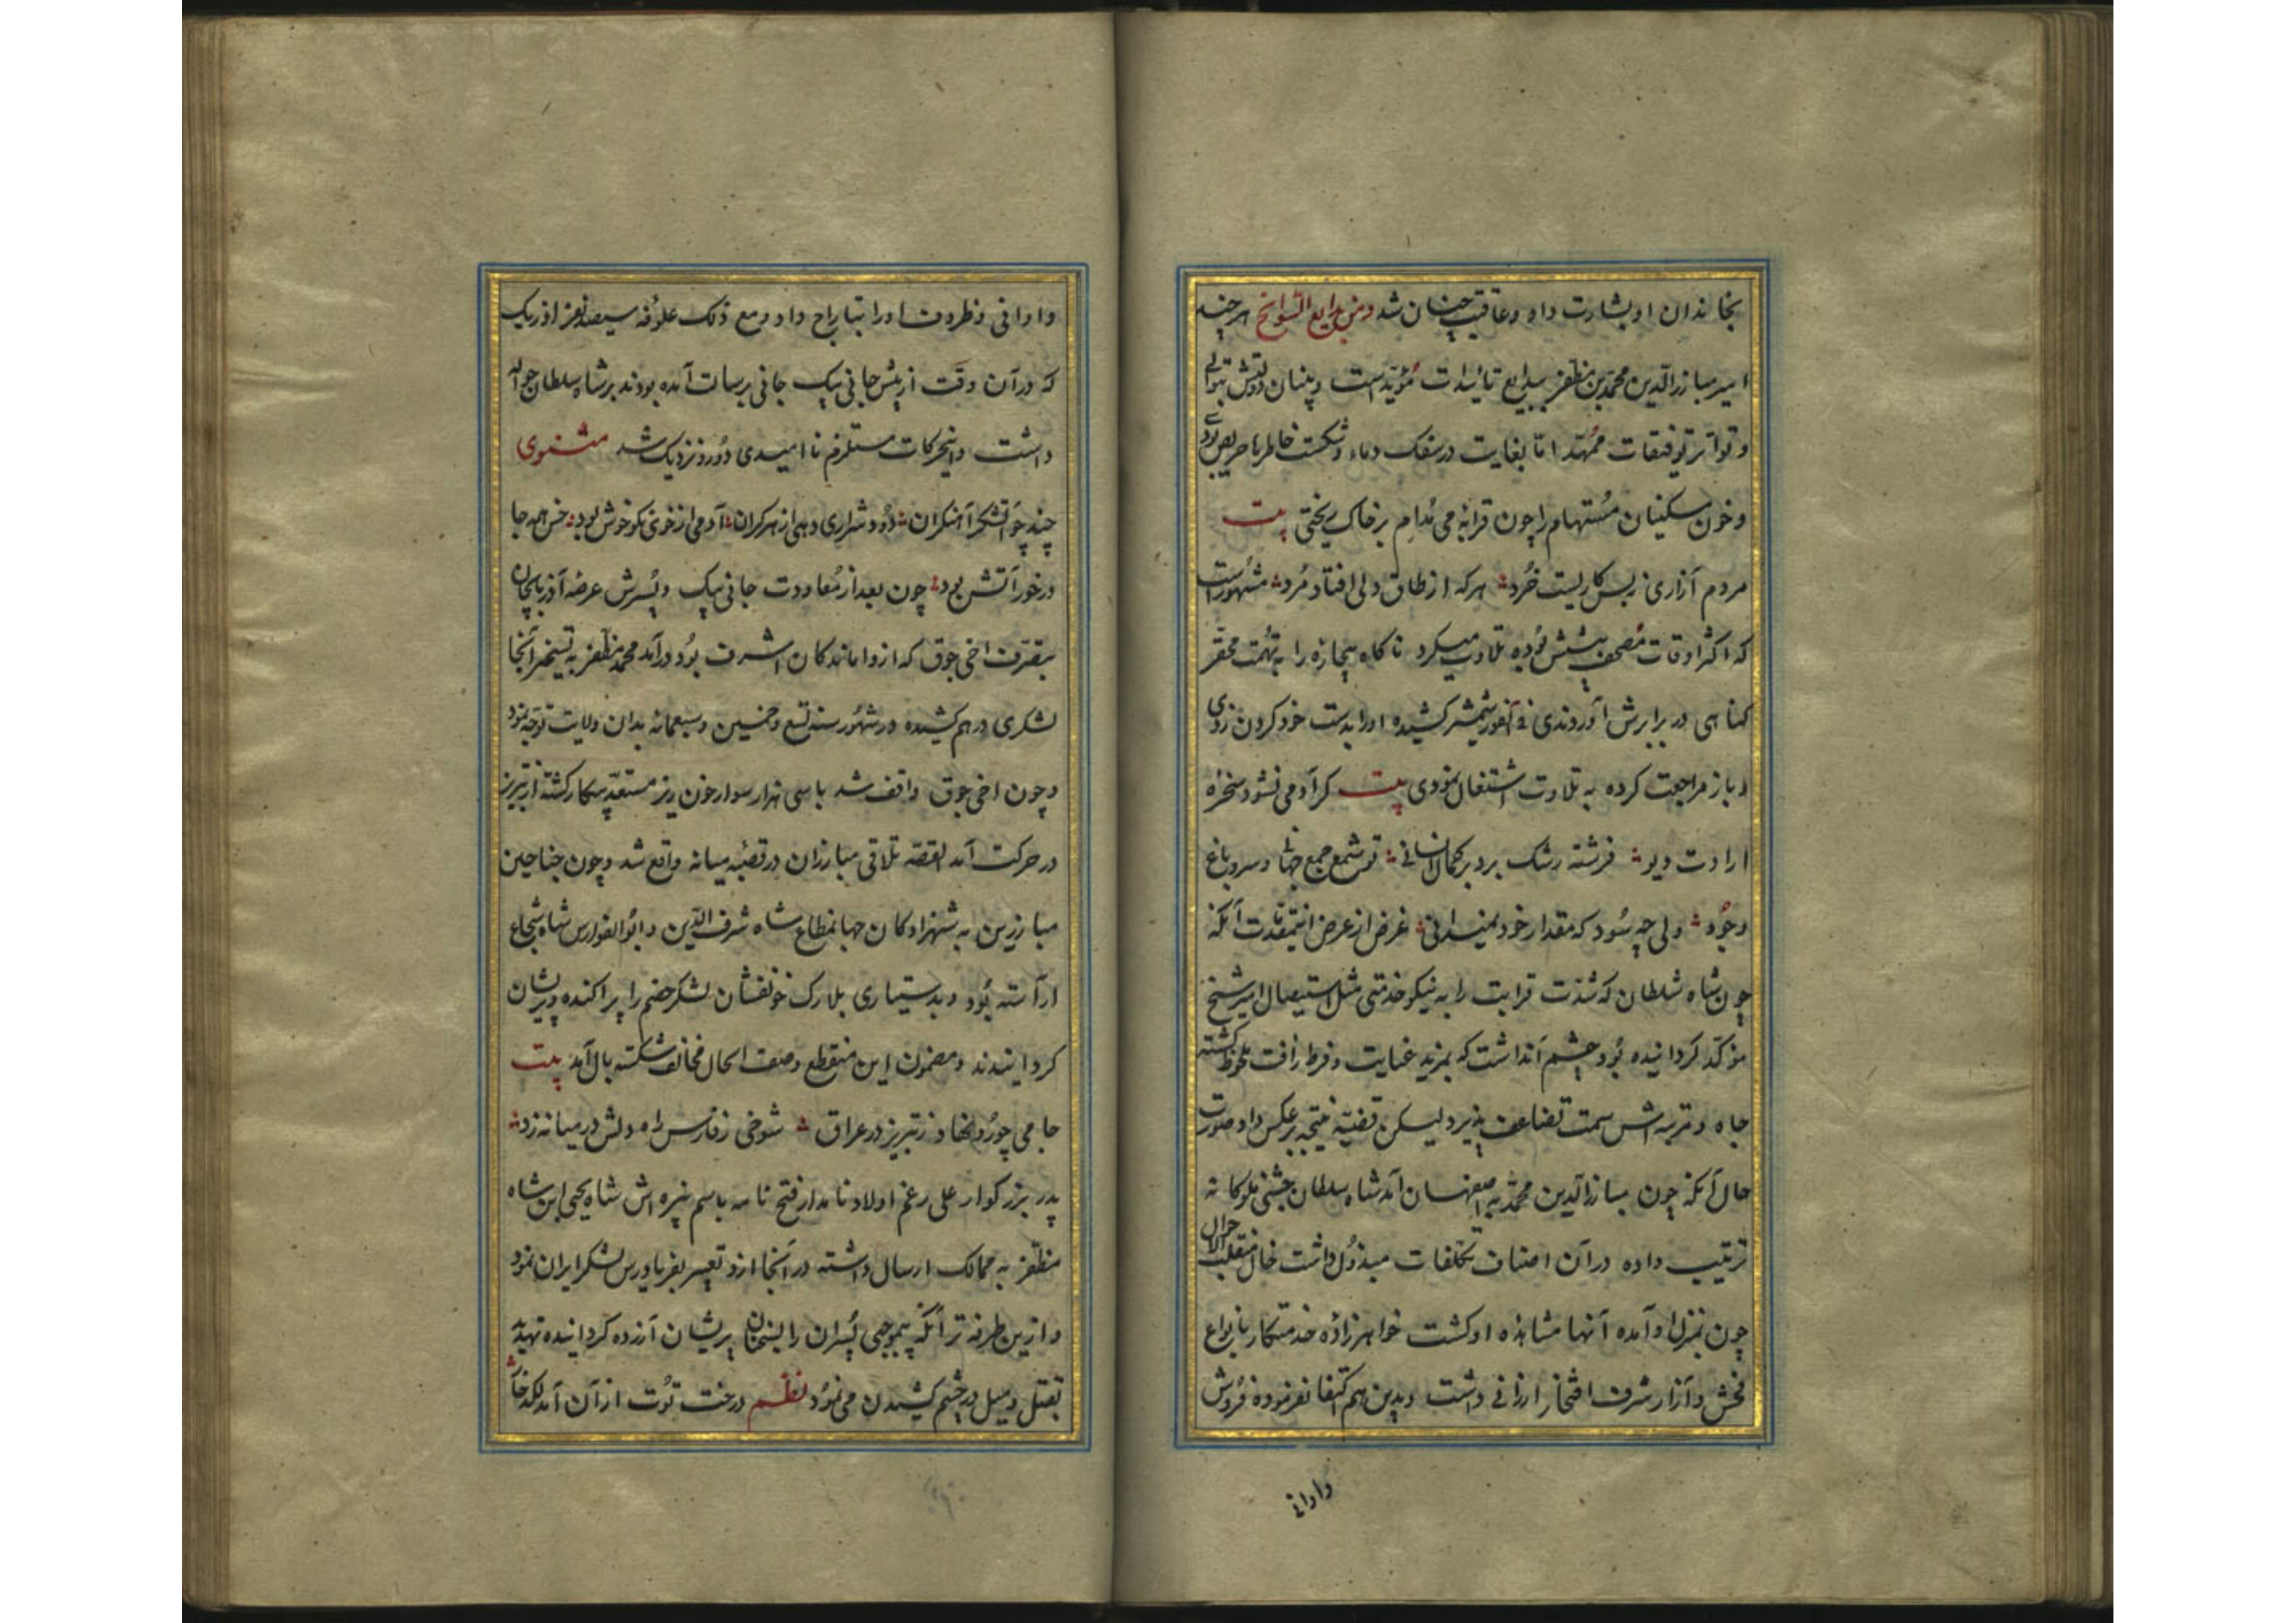 بخاندان او بشارت داد و عاقبت چنان شد ومن بدایع السوانح هرچند
امیر مبارز الدین محمد بن مظفر ببدایع تائیدات مؤید است و بنیان دولتش بتوالی
و تواتر توفیقات ممهد اما بغایت در سفک دماء و شکست خاطرها حریص بودی
و خون مسکینان مستهام را چون قرابه می مدام بر خاک ریختی بیت
مردم آزاری ز بس کاریست خرد هرکه از طاق دلی افتاد مرد مشهور است
که اکثر اوقات مصحف پیشش بوده تلاوت میکرد ناگاه بیچاره را به تهمت محقر
گناهی در برابرش آوردندی فی الفور شمشیر کشیده او را بدست خود گردن زدی
و باز مراجعت کرده به تلاوت اشتغال نمودی بیت کر آدمی نشود سخره
ارادت دیو فرشته رشک برد بر کمال انسانی توئی شمع جمع جهانی و سرو باغ
وجود ولی چه سود که مقدار خود نمیدانی غرض از عرض این مقدمات آنکه
چون شاه سلطان که شدت قرابت را به نیکو خدمتی مثل استیصال امیر شیخ
مؤکد گردانیده بود چشم آنداشت که بمزید عنایت و فرط رافت ملحوظ گشته
جاه و مرتبه اش سمت تضاعف پذیرد لیکن قضیه نتیجه بر عکس داد و صورت
حال آنکه چون مبارز الدین محمد به اصفهان آمد شاه سلطان جشنی ملوکانه
ترتیب داده در آن اصناف تکلفات مبذول داشت خال منقلب الاحوال
چون بمنزل او آمده آنها مشاهده او گشت خواهرزاده خدمتکار بانواع
فحش و آزار شرف افتخار ارزانی داشت و بدین هم اکتفا نفرموده فروش
واوانی
واوانی و ظروف او را بتاراج داد و مع ذلک علوفه سیصد نفر اوزبک
که در آن وقت از پیش جانی بیک خانی برسالت آمده بودند بر شاه سلطان حواله
داشت و این حرکات مستلزم ناامیدی دور و نزدیک شد مثنوی
چند چو آتشکر آهنگران دود و شراری دهی از هر کران آدمی از خوی نکو خوش بود خس همه جا
در خور آتش بود چون بعد از معاودت جانی بیک و پسرش عرصه آذربایجان
بتصرف اخی جوق که از واماندگان اشرف بود درآمد محمد مظفر به تسخیر آنجا
لشکری درهم کشیده در شهور سنه تسع و خمسین و سبعمائه بدان ولایت توجه نمود
و چون اخی جوق واقف شد با سی هزار سوار خون ریز مستعد پیکار گشته از تبریز
در حرکت آمد القصه تلاقی مبارزان در قصبه میانه واقع شد و چون جناحین
مبارزین به شهزادگان جهانمطاع شاه شرف الدین و ابو الفوارس شاه شجاع
آراسته بود و بدستیاری بلارک خونفشان لشکر خصم را پراکنده و پریشان
گردانیدند و مضمون این منقطع وصف الحال مخالف شکسته بال آمد بیت
جامی چو رو نهاد ز تبریز در عراق شوخی ز فارس راه دلش در میانه زد
پدر بزرگوار علی رغم اولاد نامدار فتح نامه باسم نبیره اش شاه یحیی ابن شاه
مظفر به ممالک ارسال داشته در آنجا ازو تعبیر بفریادرس لشکر ایران نمود
و ازین طرفه تر آنکه بیموجبی پسران را بسخنان پریشان آزرده گردانیده تهدید
بقتل و میل در چشم کشیدن می نمود نظم درخت توت از آن آمد لگد خوار